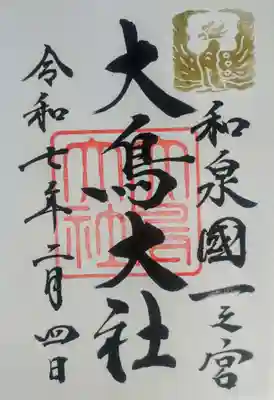 和泉國一之宮
大鳥大社
令和七年二月四日
大鳥大社